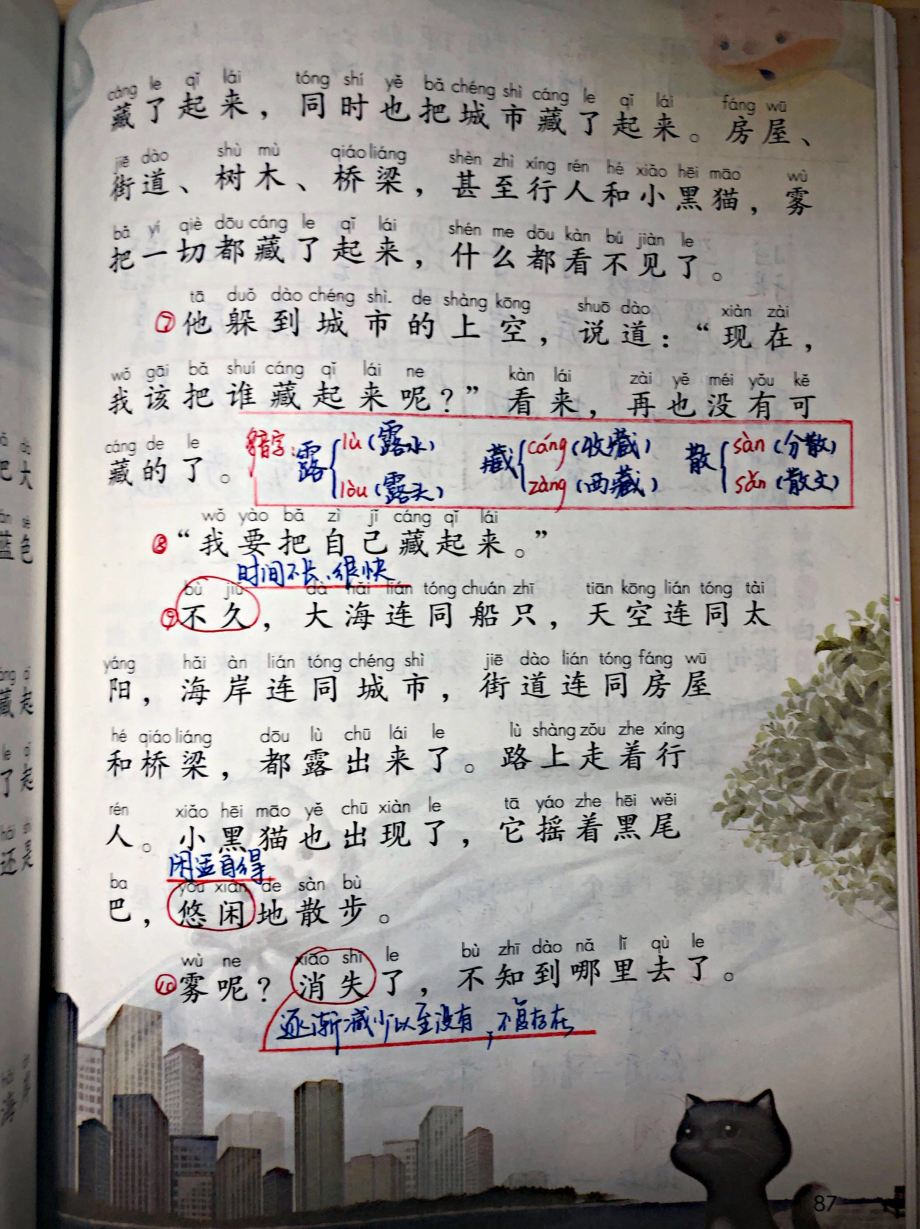 cáng le qǐ lái tóng shí yě bǎ chéng shì cáng le qǐ lái fáng wū
藏了起来，同时也把城市藏了起来。房屋、
jiē dào shù mù qiáo liáng shèn zhì xíng rén hé xiǎo hēi māo wù
街道、树木、桥梁，甚至行人和小黑猫，雾
bǎ yí qiè dōu cáng le qǐ lái shén me dōu kàn bú jiàn le
把一切都藏了起来，什么都看不见了。
tā duǒ dào chéng shì de shàng kōng shuō dào xiàn zài
⑦他躲到城市的上空，说道：“现在，
wǒ gāi bǎ shuí cáng qǐ lái ne kàn lái zài yě méi yǒu kě
我该把谁藏起来呢？”看来，再也没有可
cáng de le
藏的了。
多音字：露 lù（露水） lòu（露头） 藏 cáng（收藏） zàng（西藏） 散 sàn（分散） sǎn（散文）
wǒ yào bǎ zì jǐ cáng qǐ lái
⑧“我要把自己藏起来。”
时间不长、很快
bù jiǔ dà hǎi lián tóng chuán zhī tiān kōng lián tóng tài
⑨不久，大海连同船只，天空连同太
yáng hǎi àn lián tóng chéng shì jiē dào lián tóng fáng wū
阳，海岸连同城市，街道连同房屋
hé qiáo liáng dōu lù chū lái le lù shàng zǒu zhe xíng
和桥梁，都露出来了。路上走着行
rén xiǎo hēi māo yě chū xiàn le tā yáo zhe hēi wěi
人。小黑猫也出现了，它摇着黑尾
闲适自得
ba yōu xián de sàn bù
巴，悠闲地散步。
wù ne xiāo shī le bù zhī dào nǎ lǐ qù le
⑩雾呢？消失了，不知到哪里去了。
逐渐减少以至没有，不复存在
87
把大
蓝色
藏起
了起
还是
海